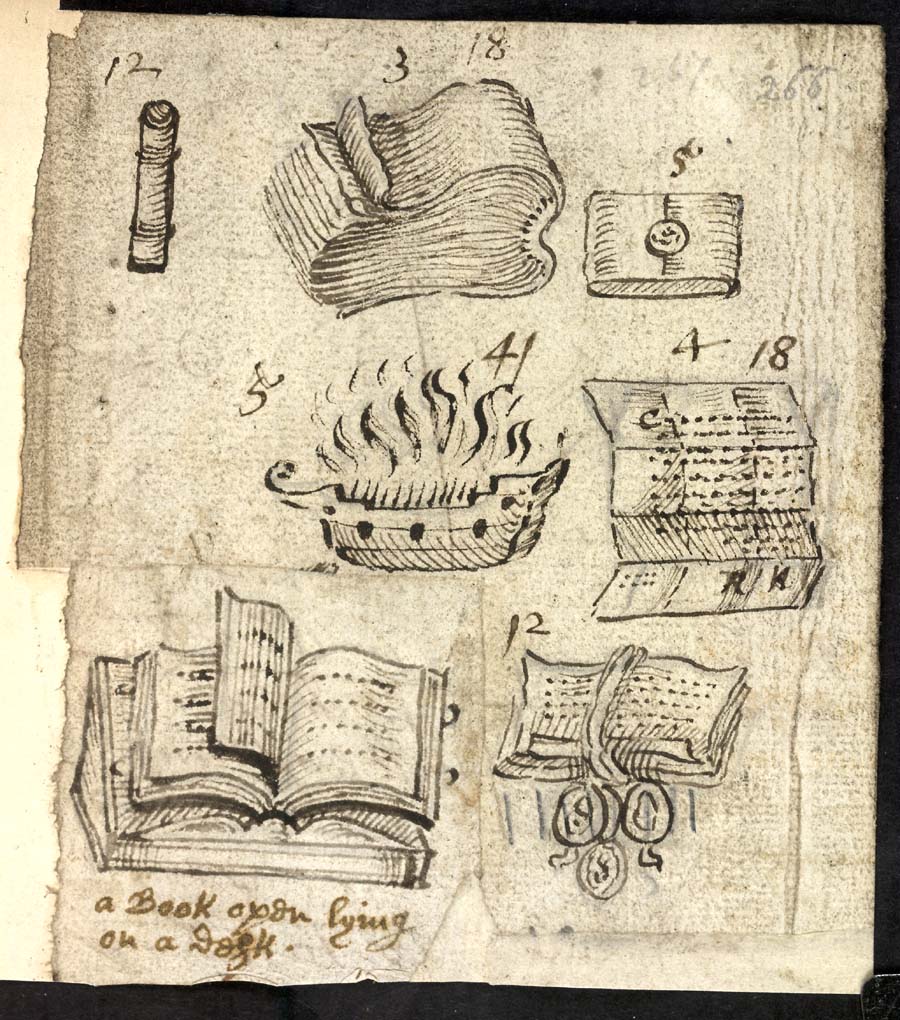 12
3 18
266
5
41
5
4 18
C
R K
12
a Book open lying
on a Desk.